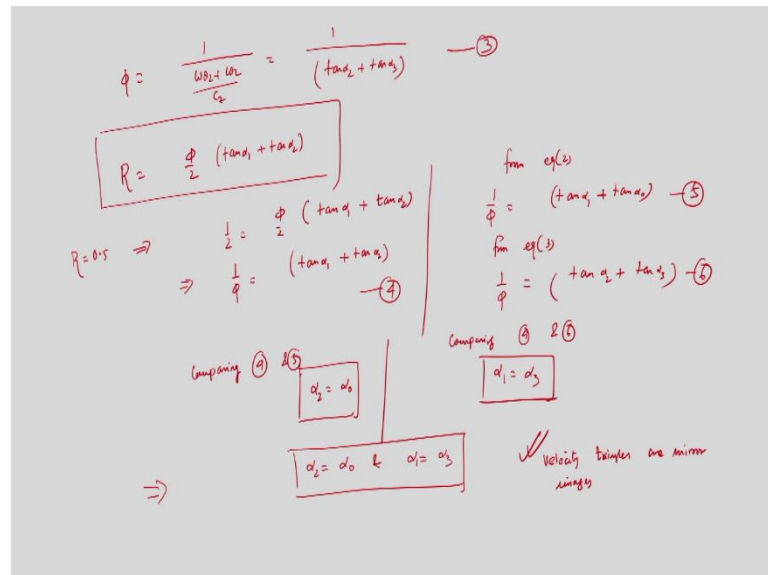 φ = 1 / ((ω₂ + ω₂) / c₂) = 1 / (tanα₂ + tanα₃) —③
R = φ/2 (tanα₁ + tanα₂)
R = 0.5 ⇒ 1/2 = φ/2 (tanα₁ + tanα₂)
⇒ 1/φ = (tanα₁ + tanα₂) —④
Comparing ④ & ⑤
α₂ = α₀
from eq(2)
1/φ = (tanα₁ + tanα₀) —⑤
from eq(3)
1/φ = (tanα₂ + tanα₃) —⑥
Comparing ④ & ⑥
α₁ = α₃
⇒ α₂ = α₀ & α₁ = α₃
✓ Velocity triangles are mirror
images